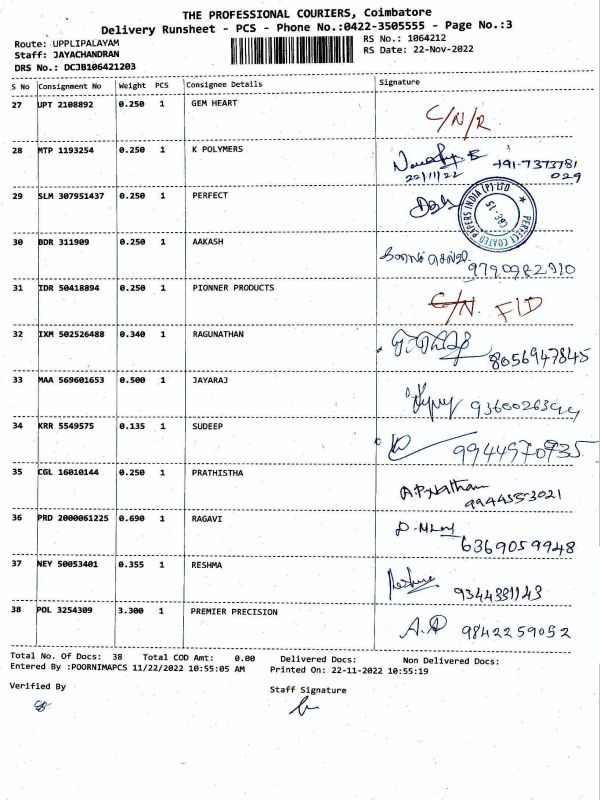 THE PROFESSIONAL COURIERS, Coimbatore
Delivery Runsheet - PCS - Phone No.:0422-3505555 - Page No.:3
Route: UPPLIPALAYAM RS No.: 1064212
Staff: JAYACHANDRAN RS Date: 22-Nov-2022
DRS No.: DCJB106421203
S No Consignment No Weight PCS Consignee Details Signature
27 UPT 2108892 0.250 1 GEM HEART C/N/R
28 MTP 1193254 0.250 1 K POLYMERS +91-7373781
22/11/22 029
29 SLM 307951437 0.250 1 PERFECT PERFECT COATED PAPERS INDIA (P) LTD
30 BDR 311909 0.250 1 AAKASH
9790982910
31 IDR 50418894 0.250 1 PIONNER PRODUCTS C/N. F/D
32 IXM 502526488 0.340 1 RAGUNATHAN
8056947845
33 MAA 569601653 0.500 1 JAYARAJ
34 KRR 5549575 0.135 1 SUDEEP 9944970735
35 CGL 16010144 0.250 1 PRATHISTHA A.P.Nathan
9944553021
36 PRD 2000061225 0.690 1 RAGAVI
6369059948
37 NEY 50053401 0.355 1 RESHMA 9344331143
38 POL 3254309 3.300 1 PREMIER PRECISION 9842259052
Total No. Of Docs: 38 Total COD Amt: 0.00 Delivered Docs: Non Delivered Docs:
Entered By :POORNIMAPCS 11/22/2022 10:55:05 AM Printed On: 22-11-2022 10:55:19
Verified By Staff Signature